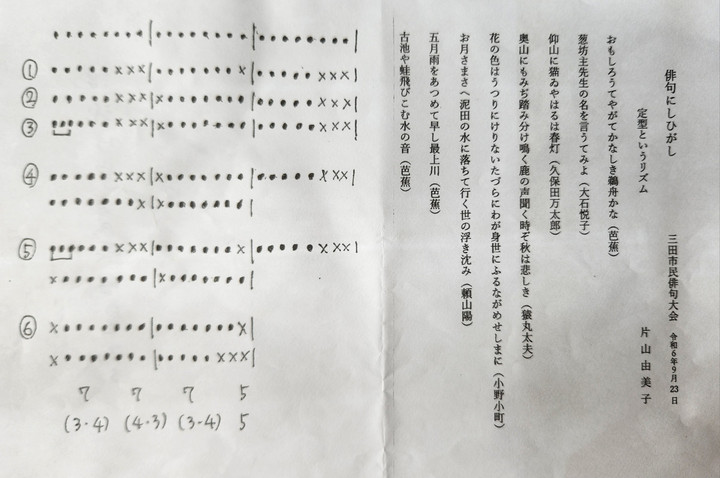 俳句にしひがし
三田市民俳句大会 令和6年9月23日
定型というリズム
片山由美子
おもしろうてやがてかなしき鵜舟かな（芭蕉）
葱坊主先生の名を言うてみよ（大石悦子）
仰山に猫ゐやはるは春灯（久保田万太郎）
奥山にもみぢ踏み分け鳴く鹿の声聞く時ぞ秋は悲しき（猿丸太夫）
花の色はうつりにけりないたづらにわが身世にふるながめせしまに（小野小町）
お月さまさへ泥田の水に落ちて行く世の浮き沈み（頼山陽）
五月雨をあつめて早し最上川（芭蕉）
古池や蛙飛びこむ水の音（芭蕉）
••••••••|••••••••|••••••••|
① •••••xxx|•••••••x|•••••xxx|
② •••••xxx|x•••••••|•••••xxx|
③ ••••••xxx|x•••••••|•••••xxx|
④ •••••xxx|•••••••x|•••••xxx|
•••••••x|x•••••••|
⑤ ••••••xxx|•••••••x|•••••xxx|
x•••••••|x•••••••|
⑥ x•••••••|•••••••x|
x•••••••|•••••xxx|
7 7 7 5
(3・4) (4・3) (3・4) 5